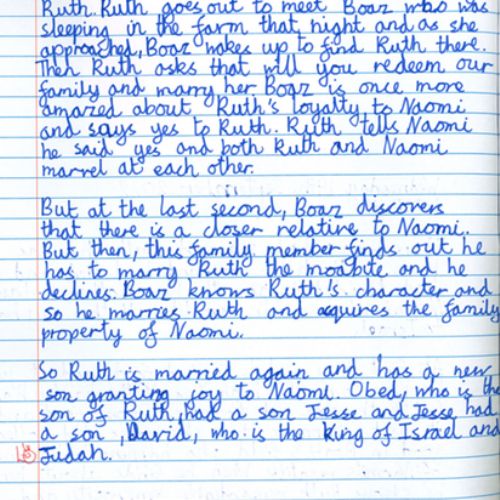 Ruth. Ruth goes out to meet Boaz who was
sleeping in the farm that night and as she
approached, Boaz wakes up to find Ruth there.
Then Ruth asks that will you redeem our
family and marry her Boaz is once more
amazed about Ruth's loyalty to Naomi
and says yes to Ruth. Ruth tells Naomi
he said yes and both Ruth and Naomi
marvel at each other.
But at the last second, Boaz discovers
that there is a closer relative to Naomi.
But then, this family member finds out he
has to marry Ruth the moabite and he
declines. Boaz knows Ruth's character and
so he marries Ruth and acquires the family
property of Naomi.
So Ruth is married again and has a new
son granting joy to Naomi. Obed, who is the
son of Ruth, had a son Jesse and Jesse had
a son, David, who is the King of Israel and
Judah.